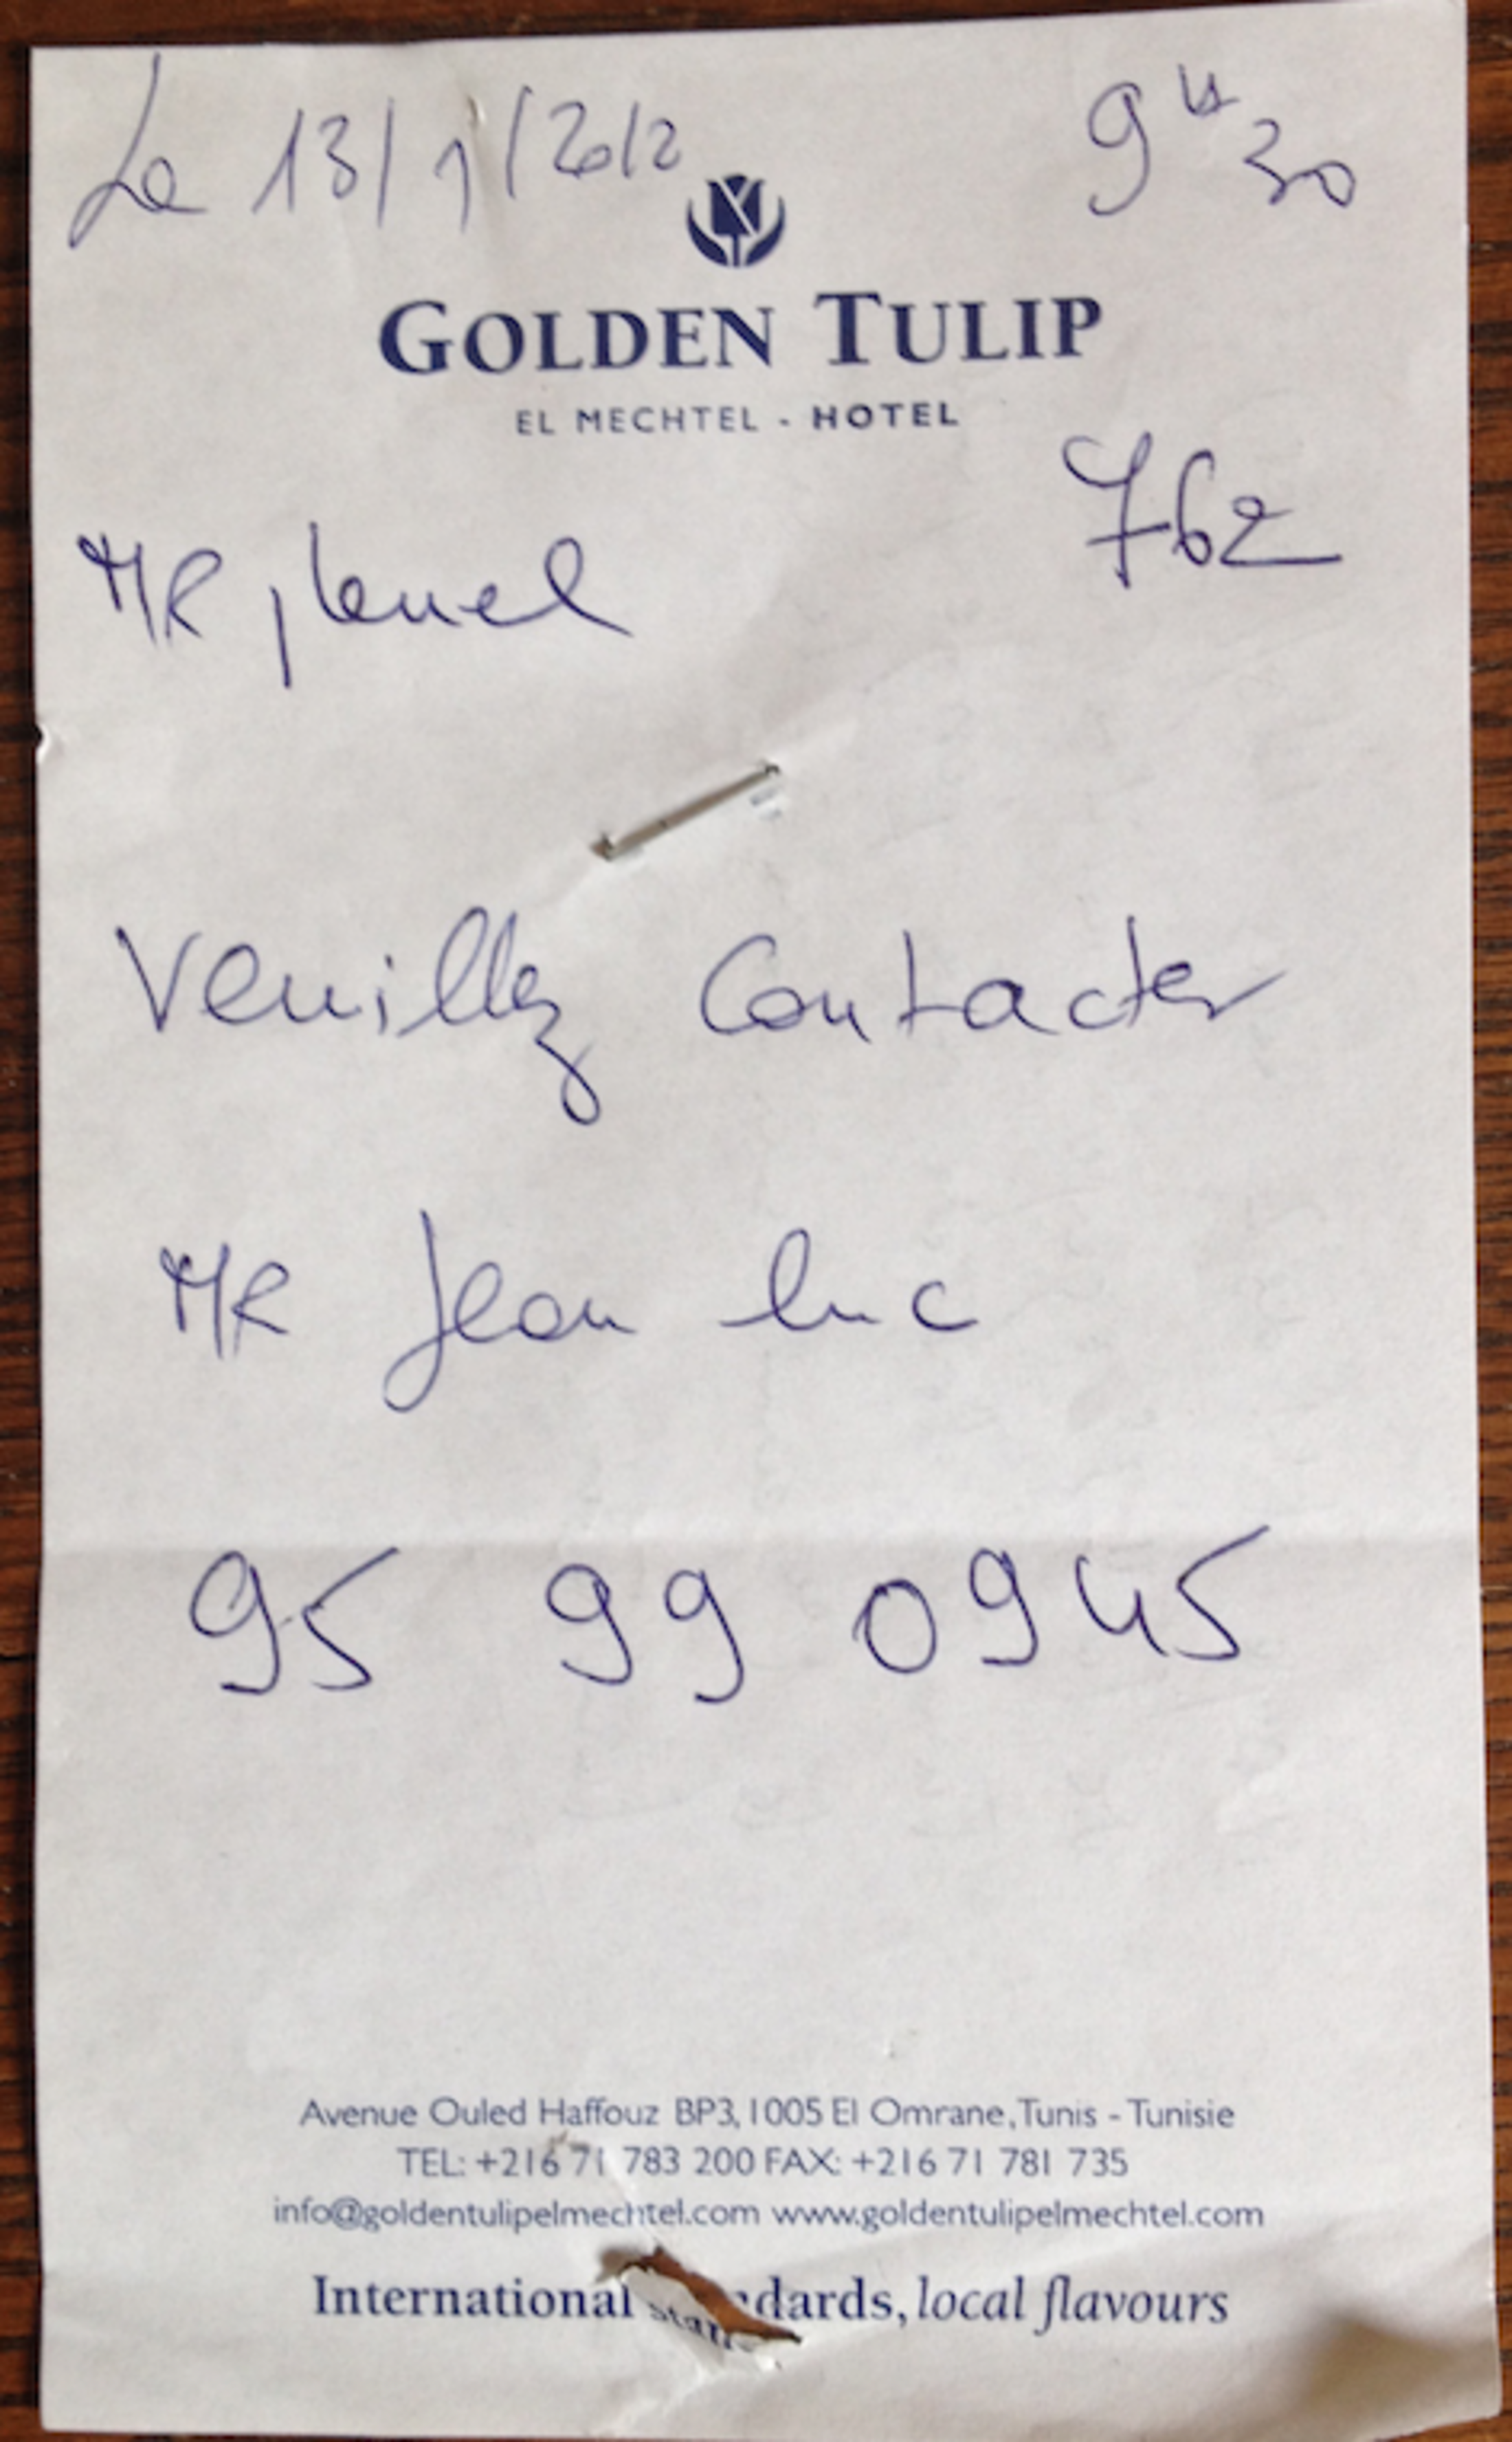 Le 13/1/2012
9H30
GOLDEN TULIP
EL MECHTEL - HOTEL
762
MR
Veuillez Contacter
MR Jean luc
95 99 0945
Avenue Ouled Haffouz BP3, 1005 El Omrane, Tunis - Tunisie
TEL: +216 71 783 200 FAX: +216 71 781 735
info@goldentulipelmechtel.com www.goldentulipelmechtel.com
International standards, local flavours